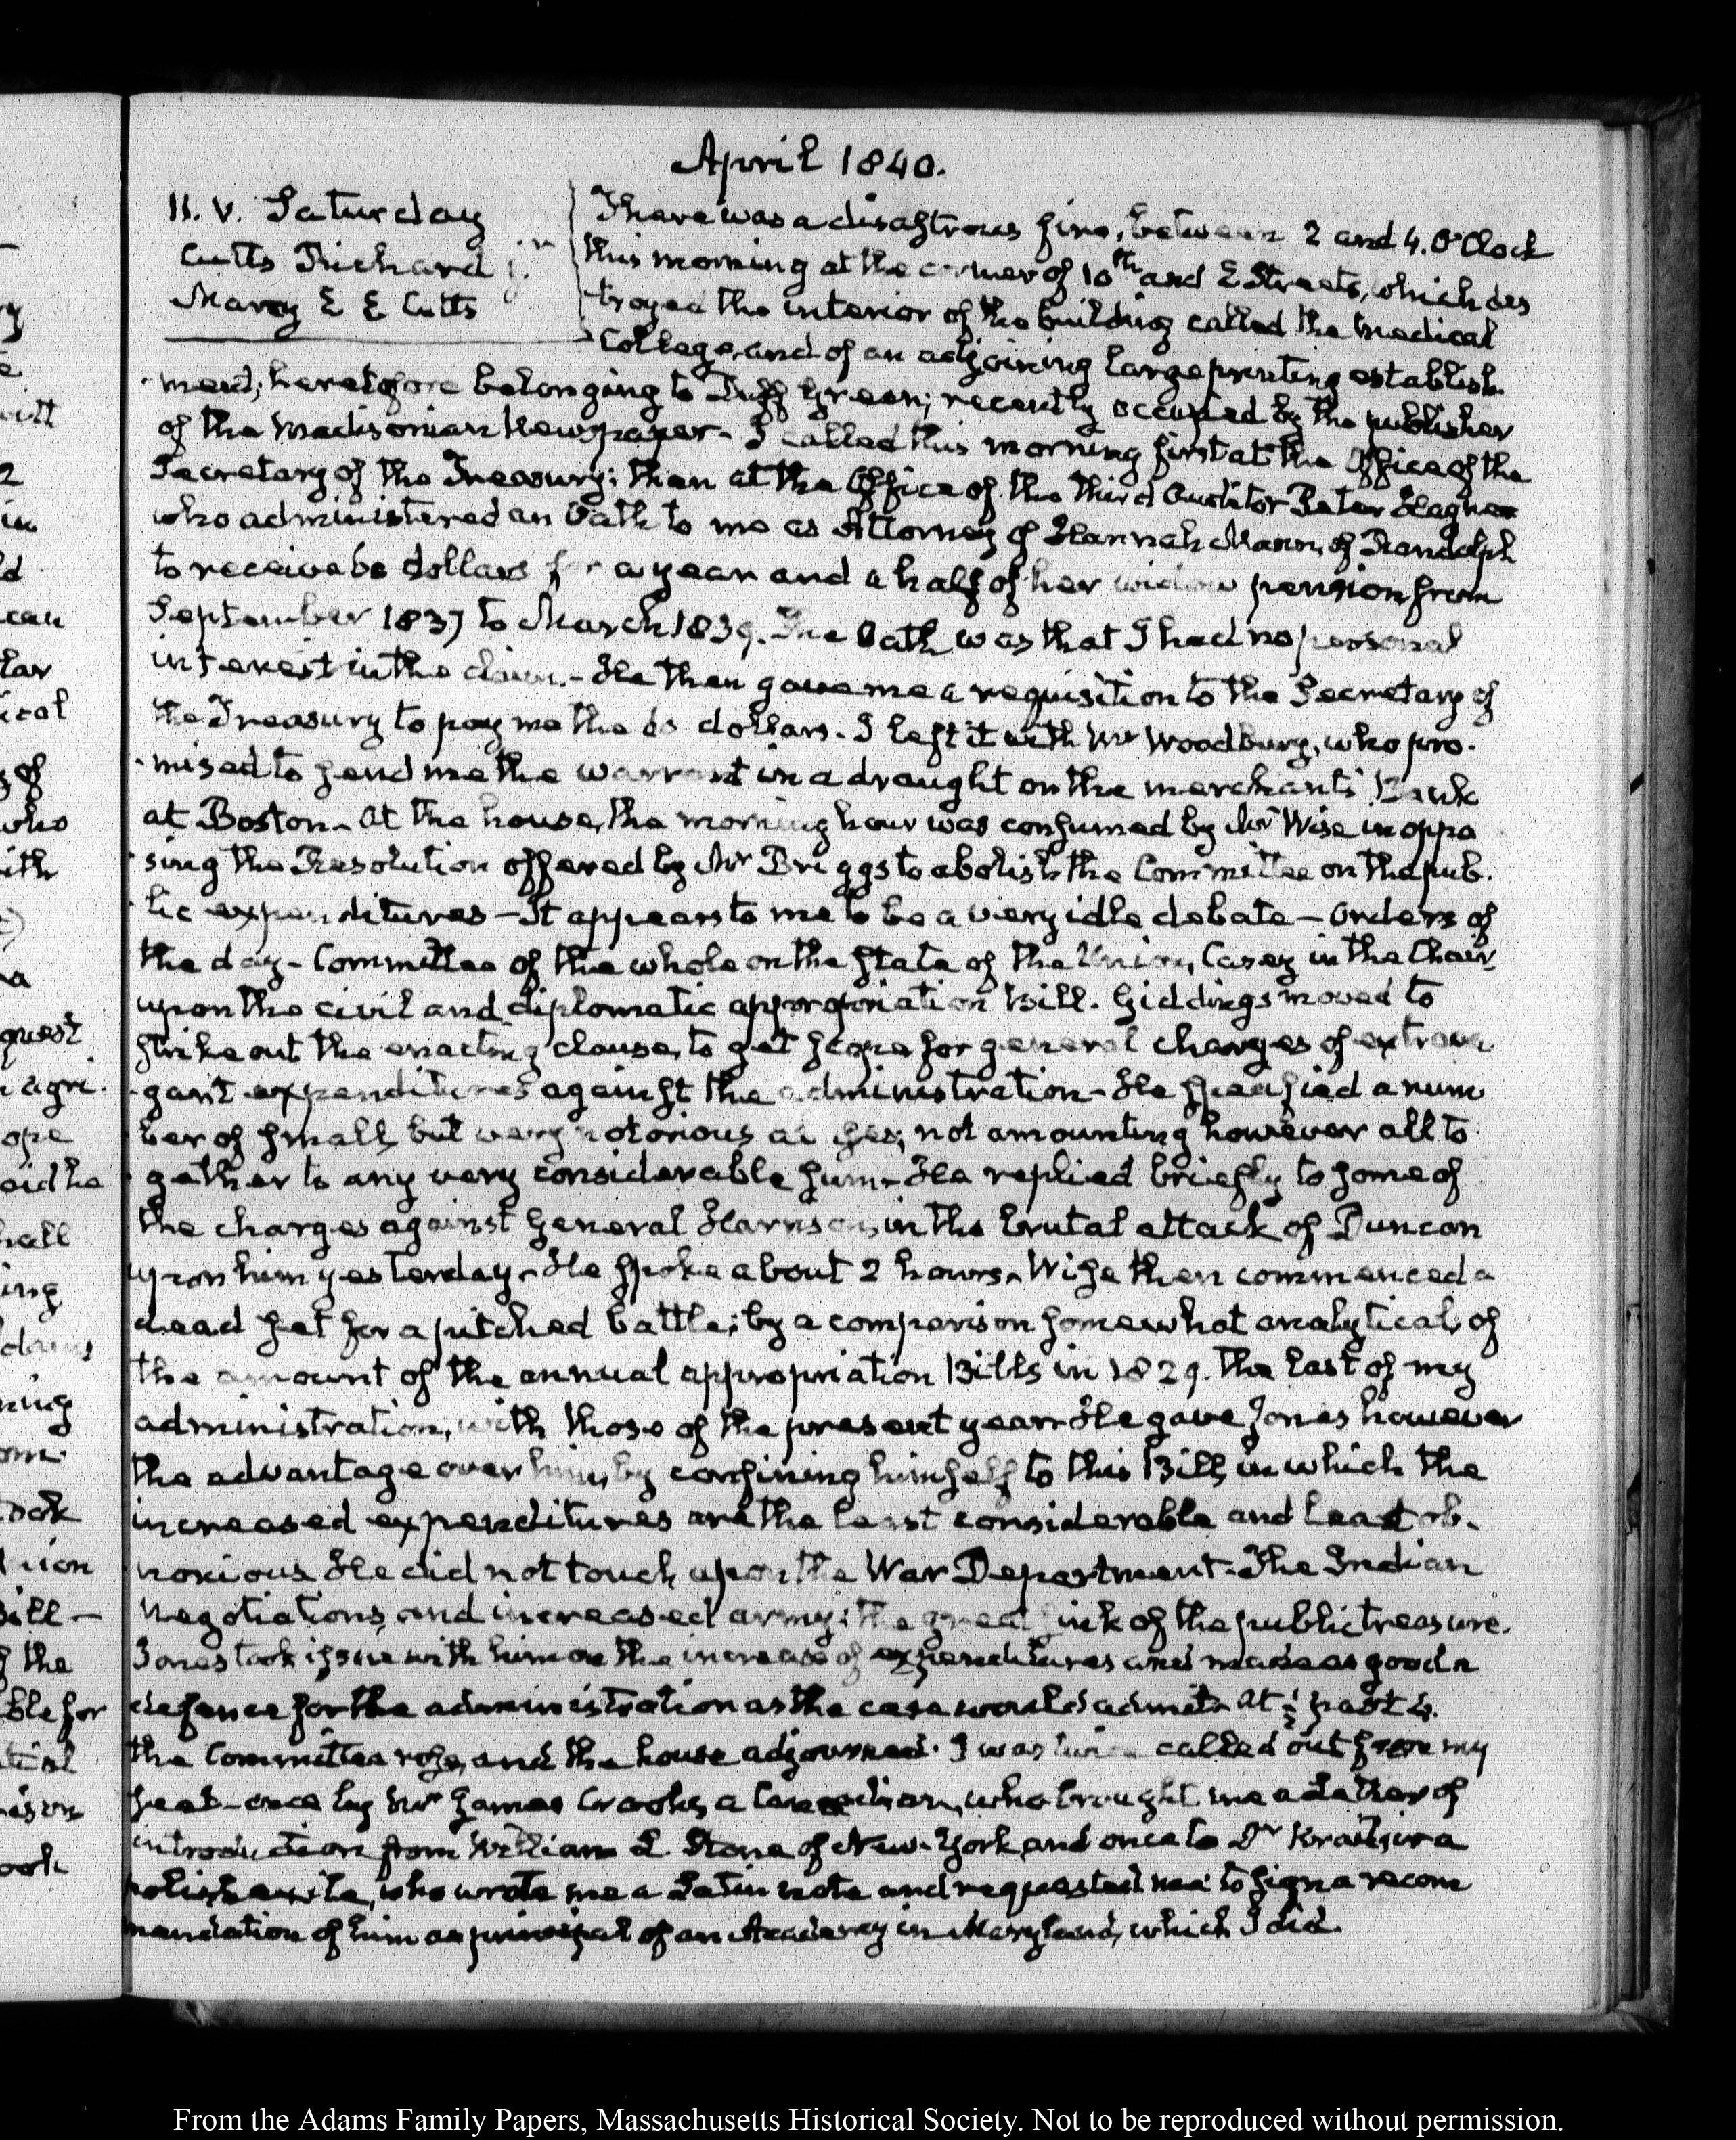 April 1840.
11. V. Saturday
Cutts Richard jr
Mary E E Cutts
There was a disastrous fire, between 2 and 4. O'Clock
this morning at the corner of 10th and E Streets, which des
troyed the interior of the building called the Medical
College, and of an adjoining large printing establish-
ment; heretofore belonging to Duff Green; recently occupied by the publisher
of the Madisonian Newspaper- I called this morning first at the Office of the
Secretary of the Treasury; then at the Office of the third Auditor Peter Hagner
who administered an Oath to me as Attorney of Hannah Mann, of Randolph
to receive dollars for a year and a half of her widow pension from
September 1837 to March 1839. The Oath was that I had no personal
interest in the claim.- He then gave me a requisition to the Secretary of
the Treasury to pay me the dollars. I left it with Mr Woodbury, who pro-
mised to send me the warrant in a draught on the merchants' Bank
at Boston- At the house, the morning hour was consumed by Mr Wise in oppo
sing the Resolution offered by Mr Briggs to abolish the Committee on the pub-
lic expenditures - It appears to me to be a very idle debate - Orders of
the day - Committee of the whole on the State of the Union, Casey in the Chair
upon the civil and diplomatic appropriation Bill. Giddings moved to
strike out the enacting clause, to get scope for general charges of extrava
gant expenditures against the administration- He specified a num
ber of small, but very notorious not amounting however all to
gether to any very considerable sum- He replied briefly to some of
the charges against General Harrison, in the brutal attack of Duncan
upon him yesterday- He spoke about 2 hours- Wise then commenced a
dead set for a pitched battle; by a comparison somewhat analytical, of
the amount of the annual appropriation Bills in 1829. the last of my
administration, with those of the present year- He gave Jones however
the advantage over him, by confining himself to this Bill, in which the
increased expenditures are the least considerable and least ob-
noxious He did not touch upon the War Department- The Indian
Negotiations, and increased army; the great sink of the public treasure.
Jones took issue with him on the increase of expenditures and made as good a
defence for the administration as the case would admit- At ½ past 4.
the Committee rose, and the house adjourned. I was twice called out from my
seat - once by Mr James Crooks, a Canadian, who brought me a Letter of
introduction from William L. Stone of New-York, and once to Dr Kraitsir a
polish exile, who wrote me a Latin note and requested me to sign a recom
mendation of him as principal of an Academy in Maryland, which I did.
From the Adams Family Papers, Massachusetts Historical Society. Not to be reproduced without permission.